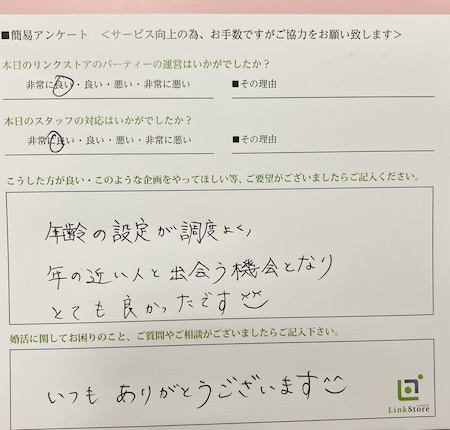 ■簡易アンケート　＜サービス向上の為、お手数ですがご協力をお願い致します＞
本日のリンクストアのパーティーの運営はいかがでしたか？
非常に良い・良い・悪い・非常に悪い　■その理由
本日のスタッフの対応はいかがでしたか？
非常に良い・良い・悪い・非常に悪い　■その理由
こうした方が良い・このような企画をやってほしい等、ご要望がございましたらご記入ください。
年齢の設定が調度よく、
年の近い人と出会う機会となり
とても良かったです
婚活に関してお困りのこと、ご質問やご相談がございましたらご記入下さい。
いつもありがとうございます^^
LinkStore